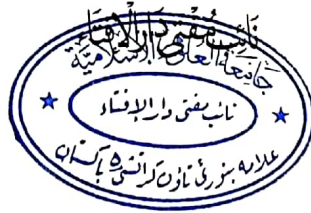 نائب مفتی دار الافتاء
جامعة العلوم الاسلامیة
نائب مفتی دار الافتاء
علامہ بنوری ٹاؤن کراتشی ۵ پاکستان